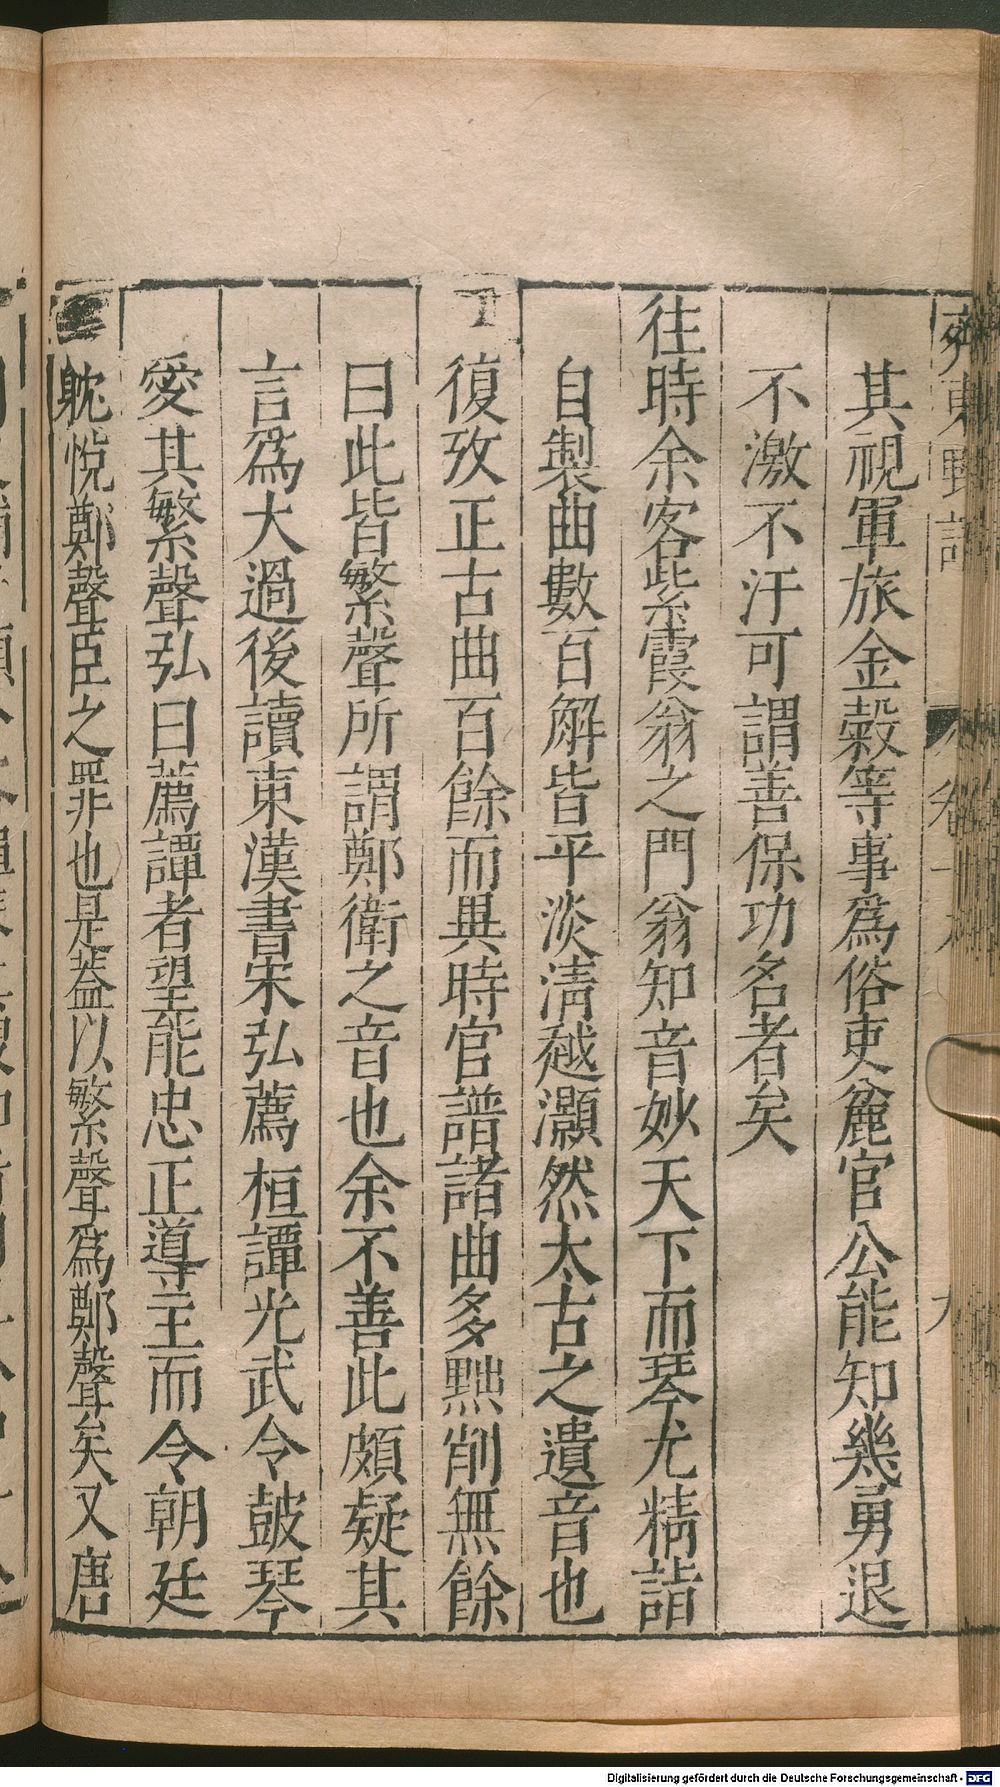 齊東野語 卷十八 九
其視軍旅金穀等事爲俗吏麄官公能知幾勇退
不激不汙可謂善保功名者矣
往時余客紫霞翁之門翁知音妙天下而琴尤精詣
自製曲數百解皆平淡淸越灝然太古之遺音也
復攷正古曲百餘而異時官譜諸曲多黜削無餘
曰此皆繁聲所謂鄭衛之音也余不善此頗疑其
言爲大過後讀東漢書宋弘薦桓譚光武令鼓琴
愛其繁聲弘曰薦譚者望能忠正導主而令朝廷
躭悅鄭聲臣之罪也是葢以繁聲爲鄭聲矣又唐
Digitalisierung gefördert durch die Deutsche Forschungsgemeinschaft - DFG